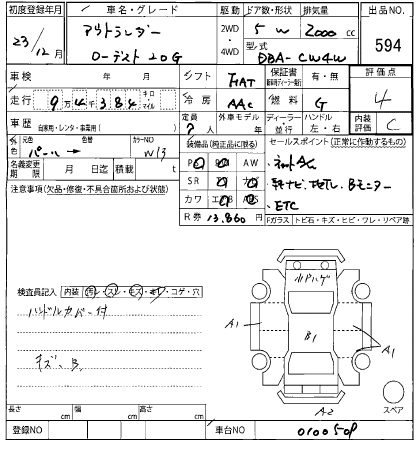 初度登録年月 / 車名・グレード 駆動 ドア数・形状 排気量 出品NO.
23/12月 アウトランダー 2WD 5 W 2000 cc 594
ローデスト20G 4WD 型式 DBA-CW4W
車検 年 月 シフト FAT 保証書 有・無 評価点
走行 9万4千384 キロ マイル 冷房 AAC 燃料 G 4
車歴 自家用・レンタ・事業用( ) 定員 7 外車モデル 年 ディーラー・並行 ハンドル 左・右 内装評価 C
色 元色 パール 色替 カラーNO W13 装備品(純正品に限る) セールスポイント(正常に作動するもの)
名義変更期限 月 日迄 積載 t
注意事項(欠品・修復・不具合箇所および状態) AW
SR
カワ
・ETC
R券 13,860 円 Fガラス トビ石・キズ・ヒビ・ワレ・リペア跡
検査員記入 内装 汚レ・スレ・キズ・キレ・コゲ・穴
ハンドルカバー付
キズ、B
ハゲ
A1 B1 A1
A2
スペア
長さ cm 幅 cm 高さ cm
登録NO 車台NO